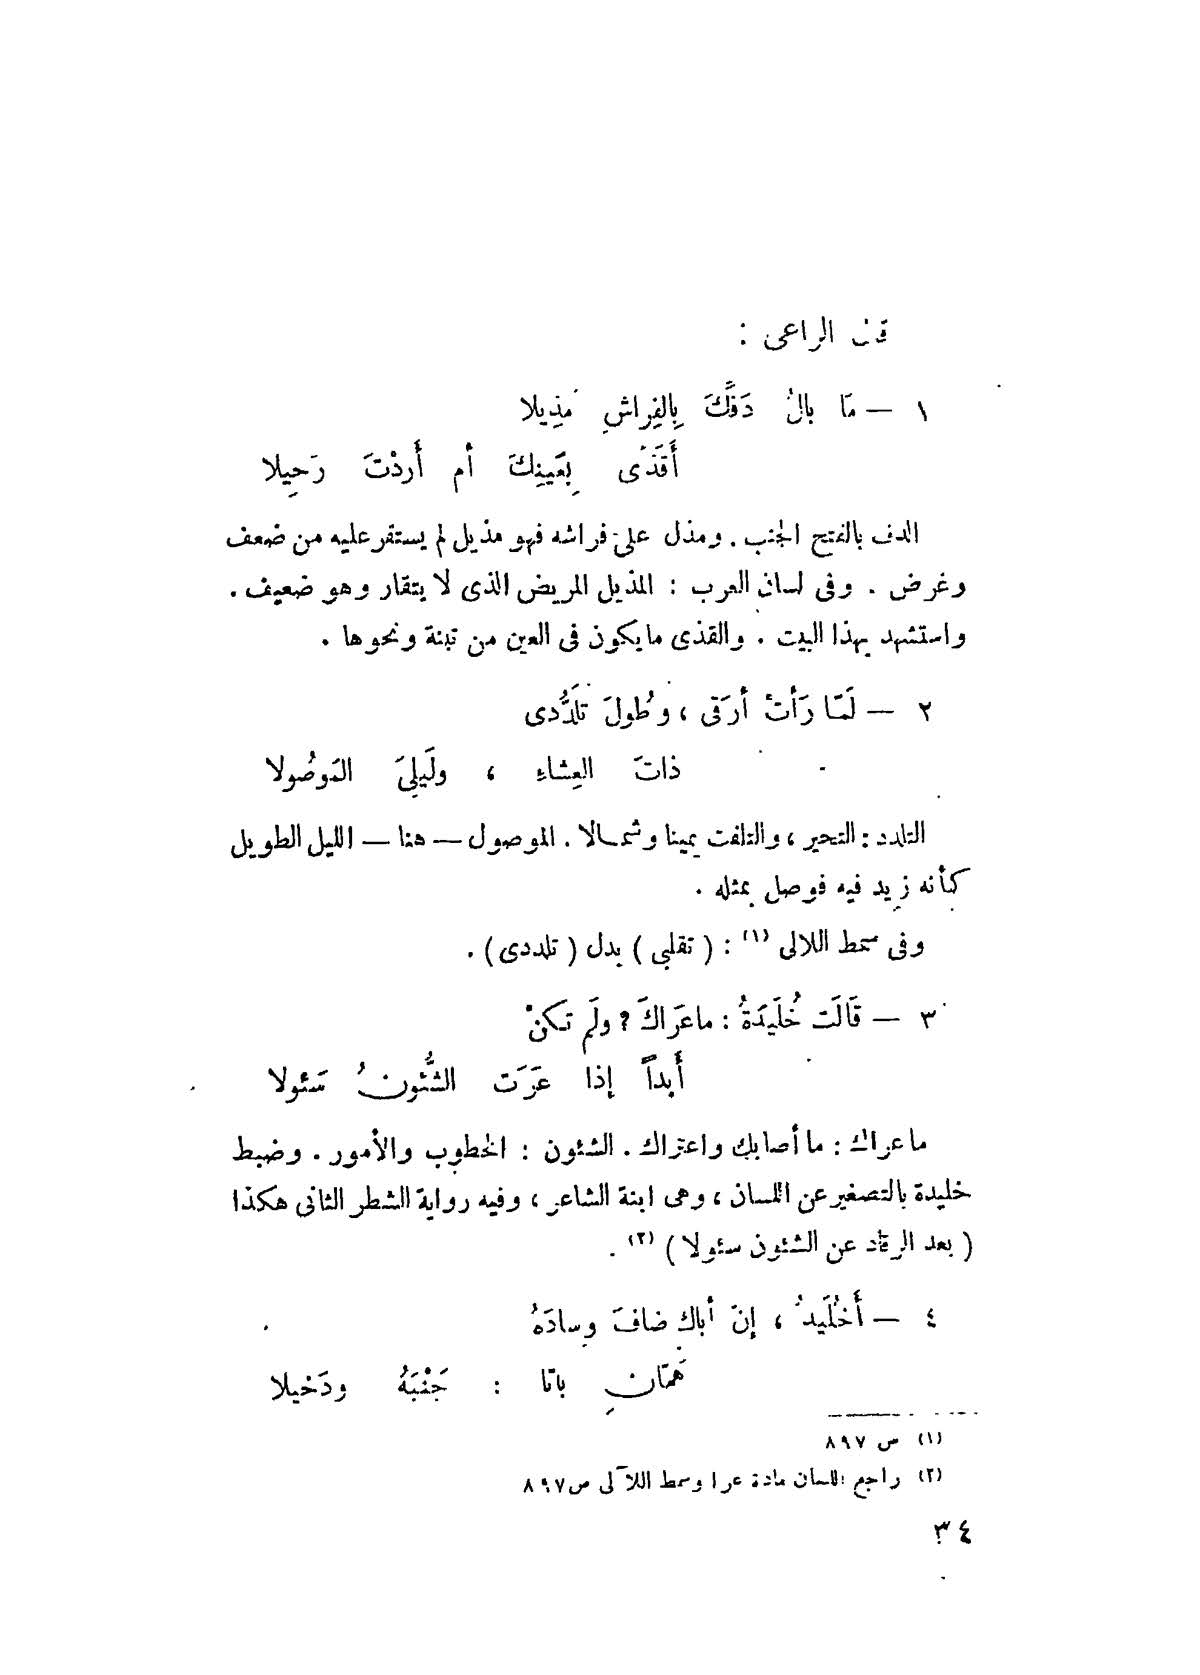 قال الراعى :
١ — مَا بالُ دَفِّكَ بِالفِراشِ مَذِيلا
أَقَذًى بِعَينِكَ أم أَردْتَ رَحِيلا
الدف بالفتح الجنب . ومذل على فراشه فهو مذيل لم يستقر عليه من ضعف
وغرض . وفى لسان العرب : المذيل المريض الذى لا يتقار وهو ضعيف .
واستشهد بهذا البيت . والقذى ما يكون فى العين من تبنة ونحوها .
٢ — لَمّا رَأتْ أرَقى ، وطُولَ تلَدُّدى
ذاتَ العِشاءِ ، ولَيلِىَ المَوصُولا
التلدد : التحير ، والتلفت يمينا وشمالا . الموصول — هنا — الليل الطويل
كأنه زيد فيه فوصل بمثله .
وفى سمط اللالى (١) : ( تقلبى ) بدل ( تلددى ) .
٣ — قَالَت خُلَيدَةُ : ماعَراكَ ؟ ولَم تَكنْ
أَبداً إذا عَرَت الشُّئونُ سَئولا
ما عراك : ما أصابك واعتراك . الشئون : الخطوب والأمور . وضبط
خليدة بالتصغير عن اللسان ، وهى ابنة الشاعر ، وفيه رواية الشطر الثانى هكذا
( بعد الرقاد عن الشئون سئولا ) (٢) .
٤ — أَخُلَيدُ ، إنّ أباك ضافَ وِسادَهُ
هَمّانِ باتا : جَنْبَهُ ودَخيلا
(١) ص ٨٩٧
(٢) راجع اللسان مادة عرا وسمط اللآلى ص٨٩٧
٣٤